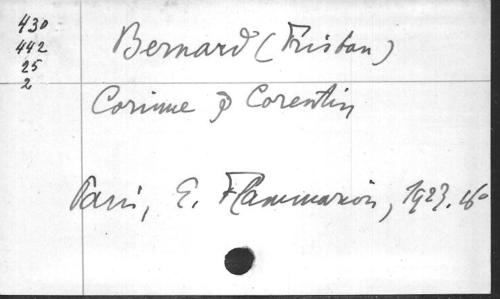 430
442
25
2
Bernard (Tristan)
Corinne & Corentin
Paris, E. Flammarion, 1923. 16º